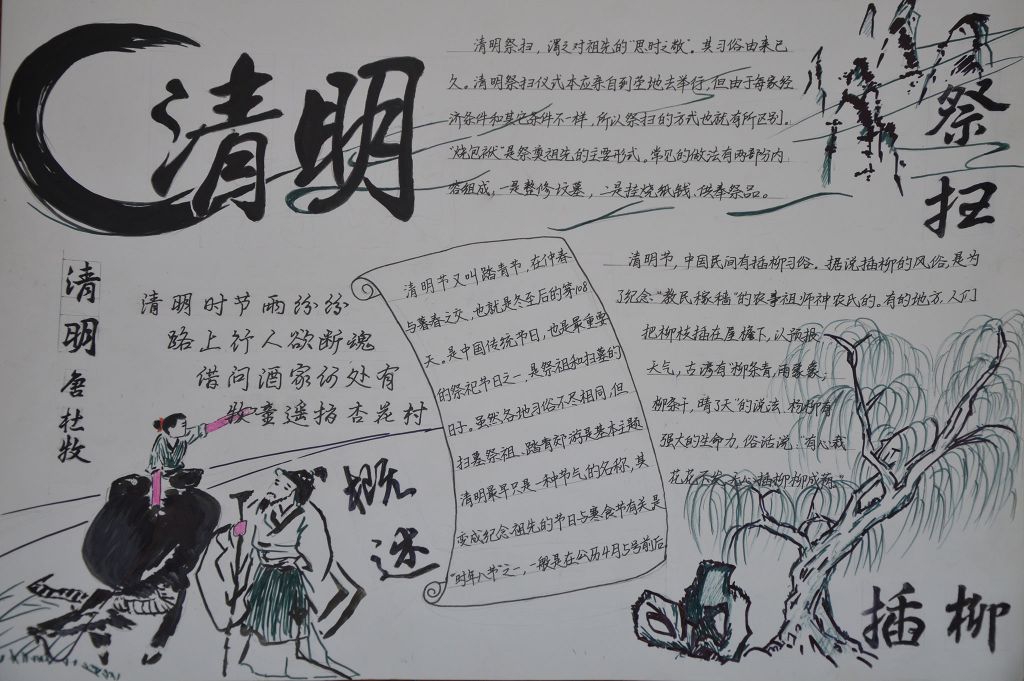 清明
清明祭扫，谓之对祖先的"思时之敬"。其习俗由来已
久。清明祭扫仪式本应亲自到茔地去举行，但由于每家经
济条件和其它条件不一样，所以祭扫的方式也就有所区别。
"烧包袱"是祭奠祖先的主要形式。常见的做法有两部分内
容组成，一是整修坟墓，二是挂烧纸钱、供奉祭品。
祭扫
清明 唐 杜牧
清明时节雨纷纷
路上行人欲断魂
借问酒家何处有
牧童遥指杏花村
概述
清明节又叫踏青节，在仲春
与暮春之交，也就是冬至后的第108
天。是中国传统节日，也是最重要
的祭祀节日之一，是祭祖和扫墓的
日子。虽然各地习俗不尽相同，但
扫墓祭祖、踏青郊游是基本主题
清明最早只是一种节气的名称，其
变成纪念祖先的节日与寒食节有关是
"时年八节"之一，一般是在公历4月5号前后
清明节，中国民间有插柳习俗。据说插柳的风俗，是为
了纪念"教民稼穑"的农事祖师神农氏的。有的地方，人们
把柳枝插在屋檐下，以预报
天气，古谚有"柳条青，雨蒙蒙；
柳条干，晴了天"的说法。杨柳有
强大的生命力，俗话说："有心栽
花花不发，无心插柳柳成荫。"
插柳